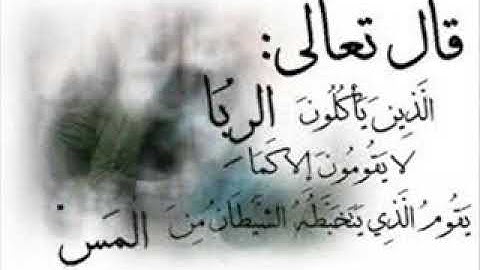 قال تعالى:
الَّذِينَ يَأْكُلُونَ الرِّبَا
لا يَقُومُونَ إلا كَمَا
يَقُومُ الَّذِي يَتَخَبَّطُهُ الشَّيْطَانُ مِنَ المَسِّ